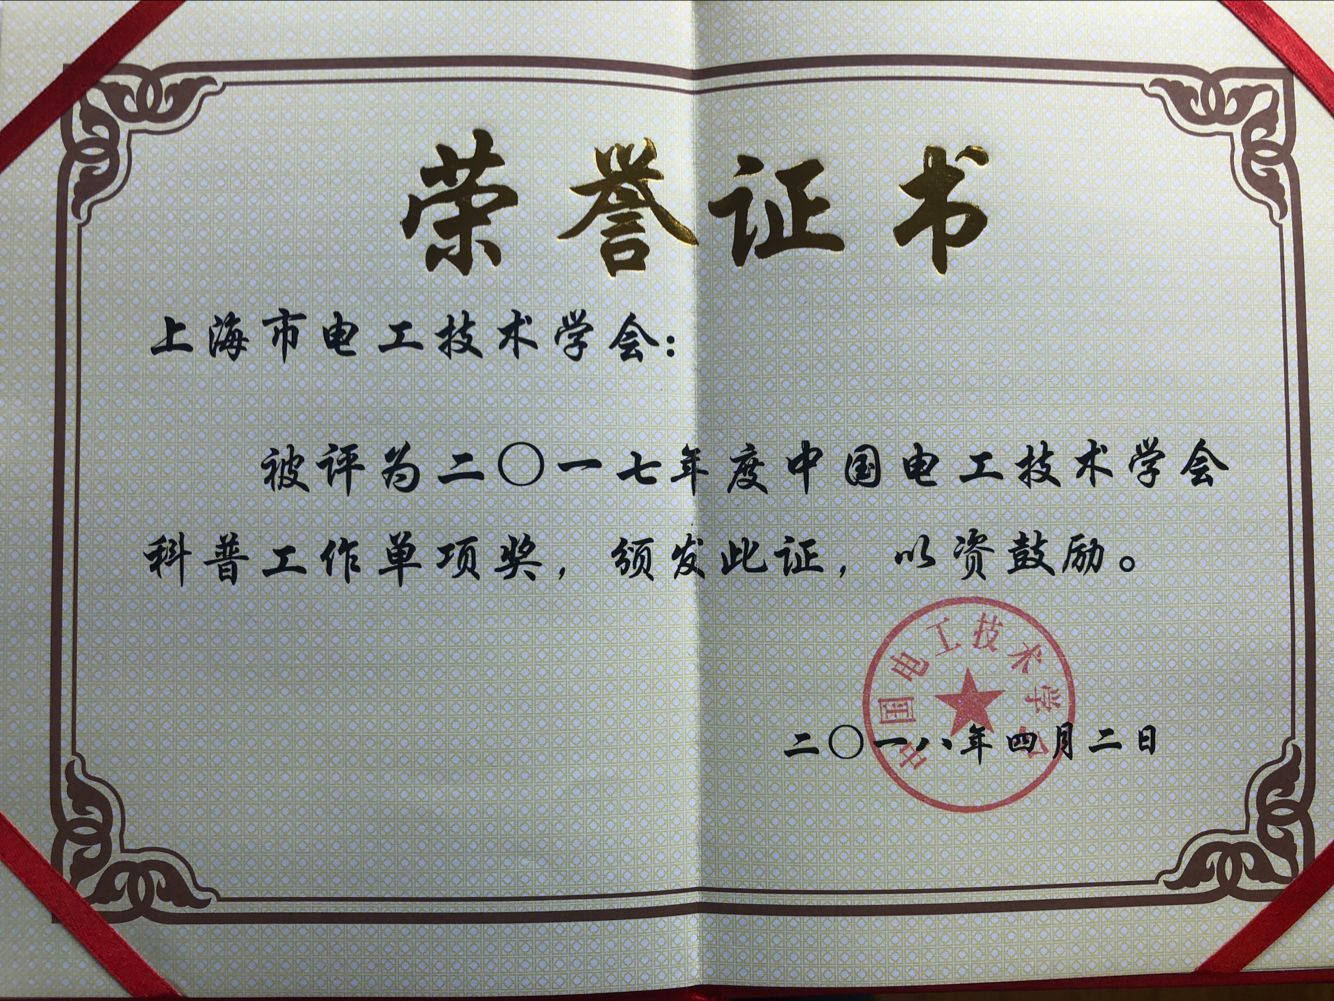 荣誉证书
上海市电工技术学会：
被评为二〇一七年度中国电工技术学会
科普工作单项奖，颁发此证，以资鼓励。
中国电工技术学会
二〇一八年四月二日